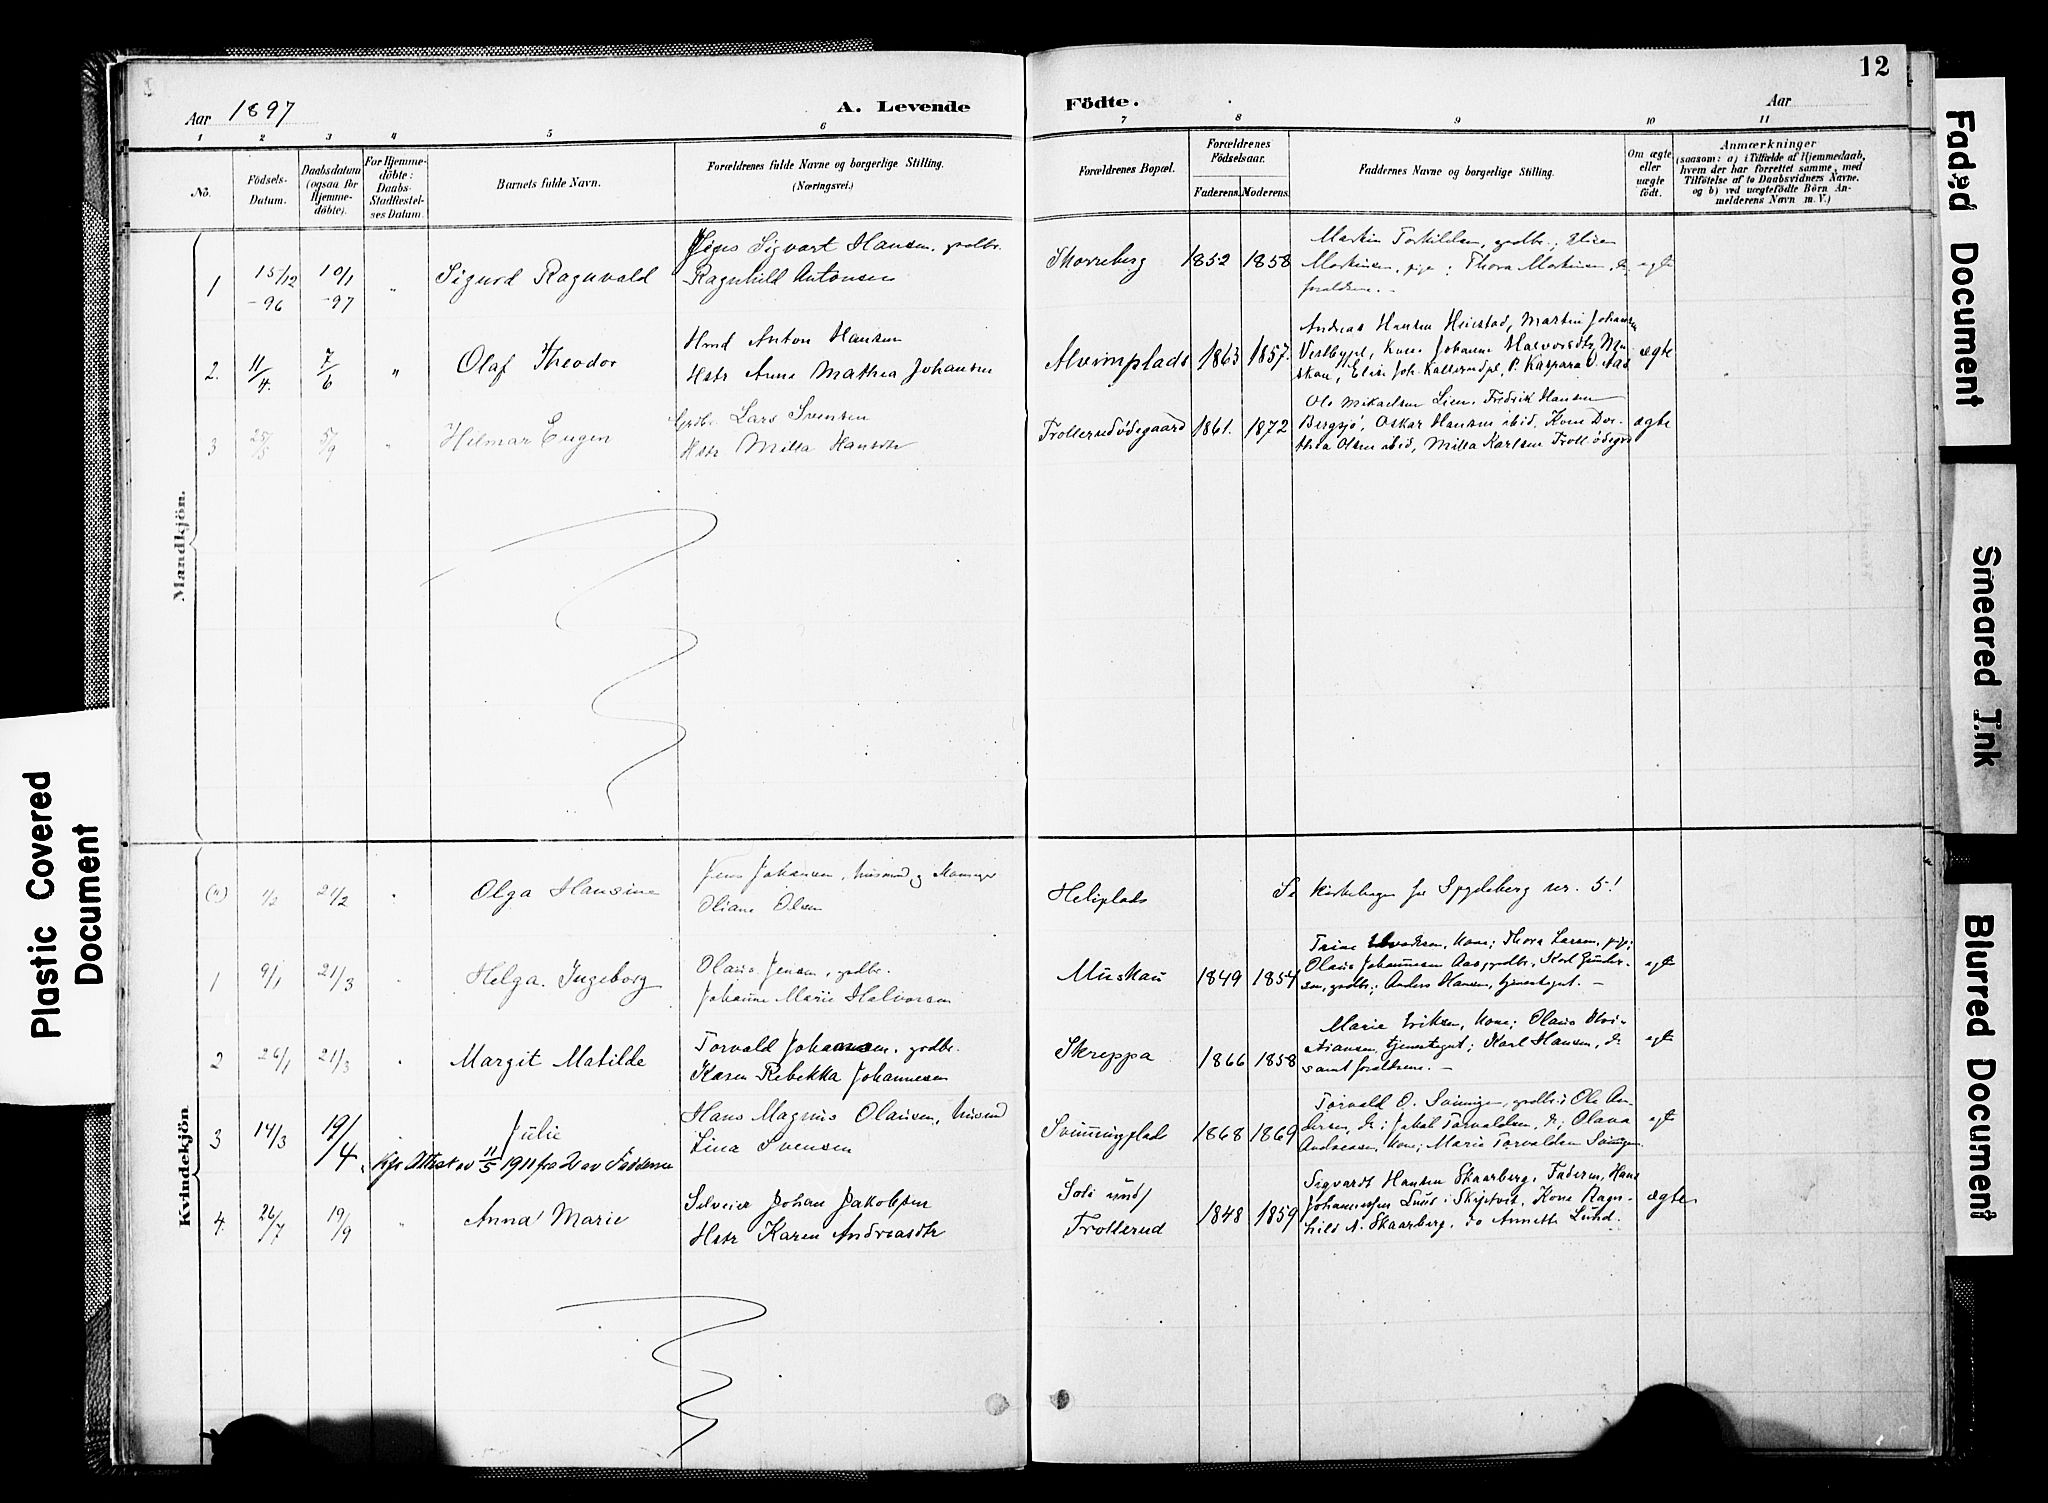 12
Aar 1897
A. Levende
Födte.
Aar
1 2 3 4 5 6 7 8 9 10 11
No.
Födsels-
Datum.
Daabsdatum
(ogsaa for
Hjemme-
döbte).
For Hjemme-
döbte:
Daabs-
Stadfæstel-
ses Datum.
Barnets fulde Navn.
Forældrenes fulde Navne og borgerlige Stilling.
(Næringsvei.)
Forældrenes Bopæl.
Forældrenes
Födselsaar.
Faderens. Moderens.
Faddernes Navne og borgerlige Stilling.
Om ægte
eller
uægte
født.
Anmærkninger
(saasom: a) i Tilfælde af Hjemmedaab,
hvem der har forrettet samme, med
Tilföielse af to Daabsvidners Navne,
og b) ved uægtefödte Börn An-
melderens Navn m. V.)
Mandkjön.
1 15/12 -96 10/1 -97 " Sigurd Ragnvald
Jens Sigvart Hansen, grdbr.
Ragnhild Antonsen
Skorreberg 1852 1858
Martin Torkildsen, grdbr.; Elise
Martinsen, pige; Thora Martinsen, do
forældrene. -
egte
2. 11/4. 7/6 " Olaf Theodor
Hmd Anton Hansen
Hstr Anne Mathea Johansen
Alvimplads 1863 1857.
Andreas Hansen Heiestad, Martin Johansen
Vestbypl, Kone Johanne Halvorsdtr, Mu-
skau, Elise Joh. Kallerudpl, P. Kaspara O. Aas
ægte
3 25/5 5/9 " Hilmar Eugen
Grdbr. Lars Svensen
Hstr Milla Hansdtr
Trollerudødegaard 1861. 1872
Ole Mikaelsen Lien, Fredrik Hansen
Bergsjø, Oskar Hansen ibid, Kone Dor-
thea Olsen ibid, Milla Karlsen Troll ødegrd
ægte
Kvindekjön
1/2 21/2 " Olga Hansine
Jens Johansen, husmand og
Oliane Olsen
Heliplads
Se kirkebogen for Spydeberg nr. 5!
1 9/1 21/3 " Helga Ingeborg
Olaus Jensen, grdbr.
Johanne Marie Halvorsen
Muskau 1849 1854
Trine kone; Thora Larsen, pige;
Olaus Johannesen Aas, grdbr, Karl Gunder-
sen, grdbr.; Anders Hansen, tjenestegut. -
egte
2 26/1 21/3 " Margit Matilde
Torvald Johannesen, grdbr.
Karen Rebekka Johannesen
Skreppa 1866 1858
Marie Eriksen, kone; Olaus Kri-
stiansen, tjenestegut; Karl Hansen, do
samt forældrene. -
egte
3 14/3 19/4 " Julie
Kfr. Attest av 11/5 1911 fra 2 av Faddersne
Hans Magnus Olausen, husmd
Lina Svensen
Svinningplads 1868 1869
Torvald O. Svinningen, grdbr.; Ole An-
dersen, do; Jakob Torvaldsen, do; Olava
Andreasen, kone; Marie Torvaldsen Svinningen
egte
4. 26/7 19/9 " Anna Marie
Selveier Johan Jakobsen
Hstr Karen Andreasdtr
Trollerud 1848 1859
Sigvardt Hansen Skaarberg, Faderen, Hans
Johannessen Lund i Skiptvet, Kone Ragn-
hild A. Skaarberg, do Annette Lund.
ægte
Plastic Covered
Document
Faded Document
Smeared Ink
Blurred Document